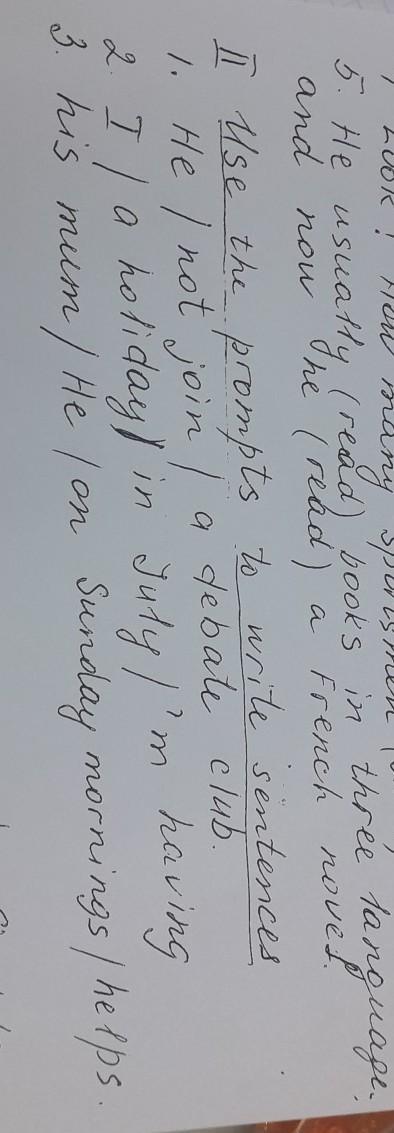 Look! How many sportsmen
5. He usually (read) books in three language,
and now he (read) a French novel.
II Use the prompts to write sentences
1. He / not join / a debate club.
2. I / a holiday / in July / 'm having
3. his mum / He / on Sunday mornings / helps.